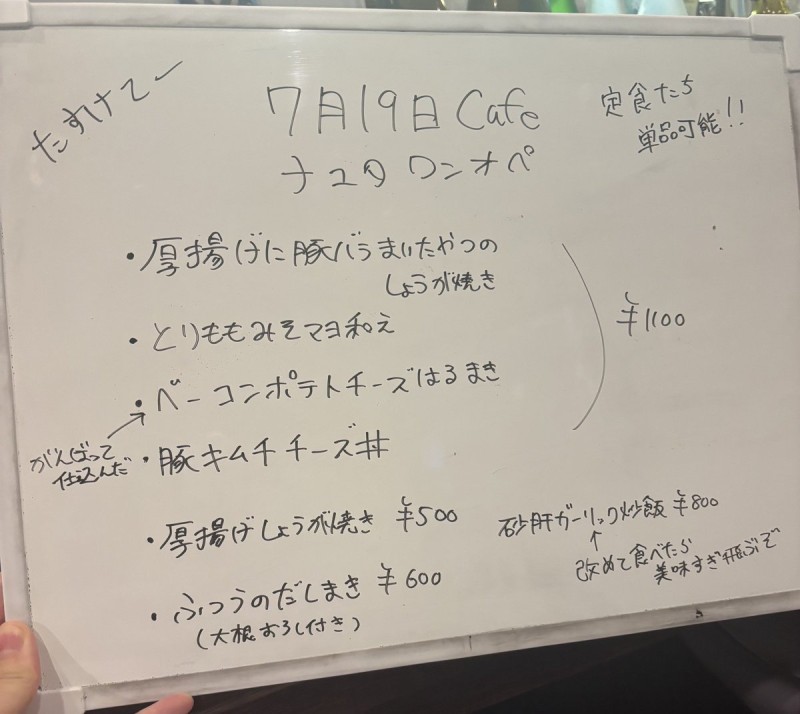 たすけてー
7月19日 Cafe
ナユタ ワンオペ
定食たち
単品可能!!
・厚揚げに豚バラまいたやつの
しょうが焼き
・とりももみそマヨ和え
・ベーコンポテトチーズはるまき
がんばって
仕込んだ
・豚キムチチーズ丼
¥1100
・厚揚げしょうが焼き ¥500
・ふつうのだしまき ¥600
(大根おろし付き)
砂肝ガーリック炒飯 ¥800
↑
改めて食べたら
美味すぎ飛ぶぞ